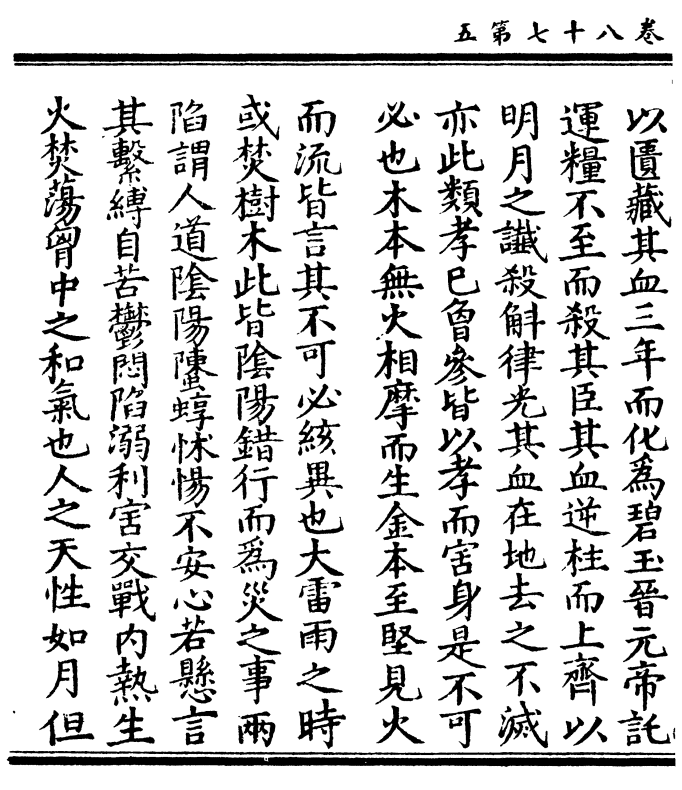 卷八十七第五
以匱藏其血三年而化為碧玉晉元帝託
運糧不至而殺其臣其血逆柱而上齊以
明月之讖殺斛律光其血在地去之不滅
亦此類孝已曾參皆以孝而害身是不可
必也木本無火相摩而生金本至堅見火
而流皆言其不可必絯異也大雷雨之時
或焚樹木此皆陰陽錯行而為災之事兩
陷謂人道陰陽螴蜳怵惕不安心若懸言
其繫縛自苦鬱悶陷溺利害交戰內熱生
火焚蕩胷中之和氣也人之天性如月但